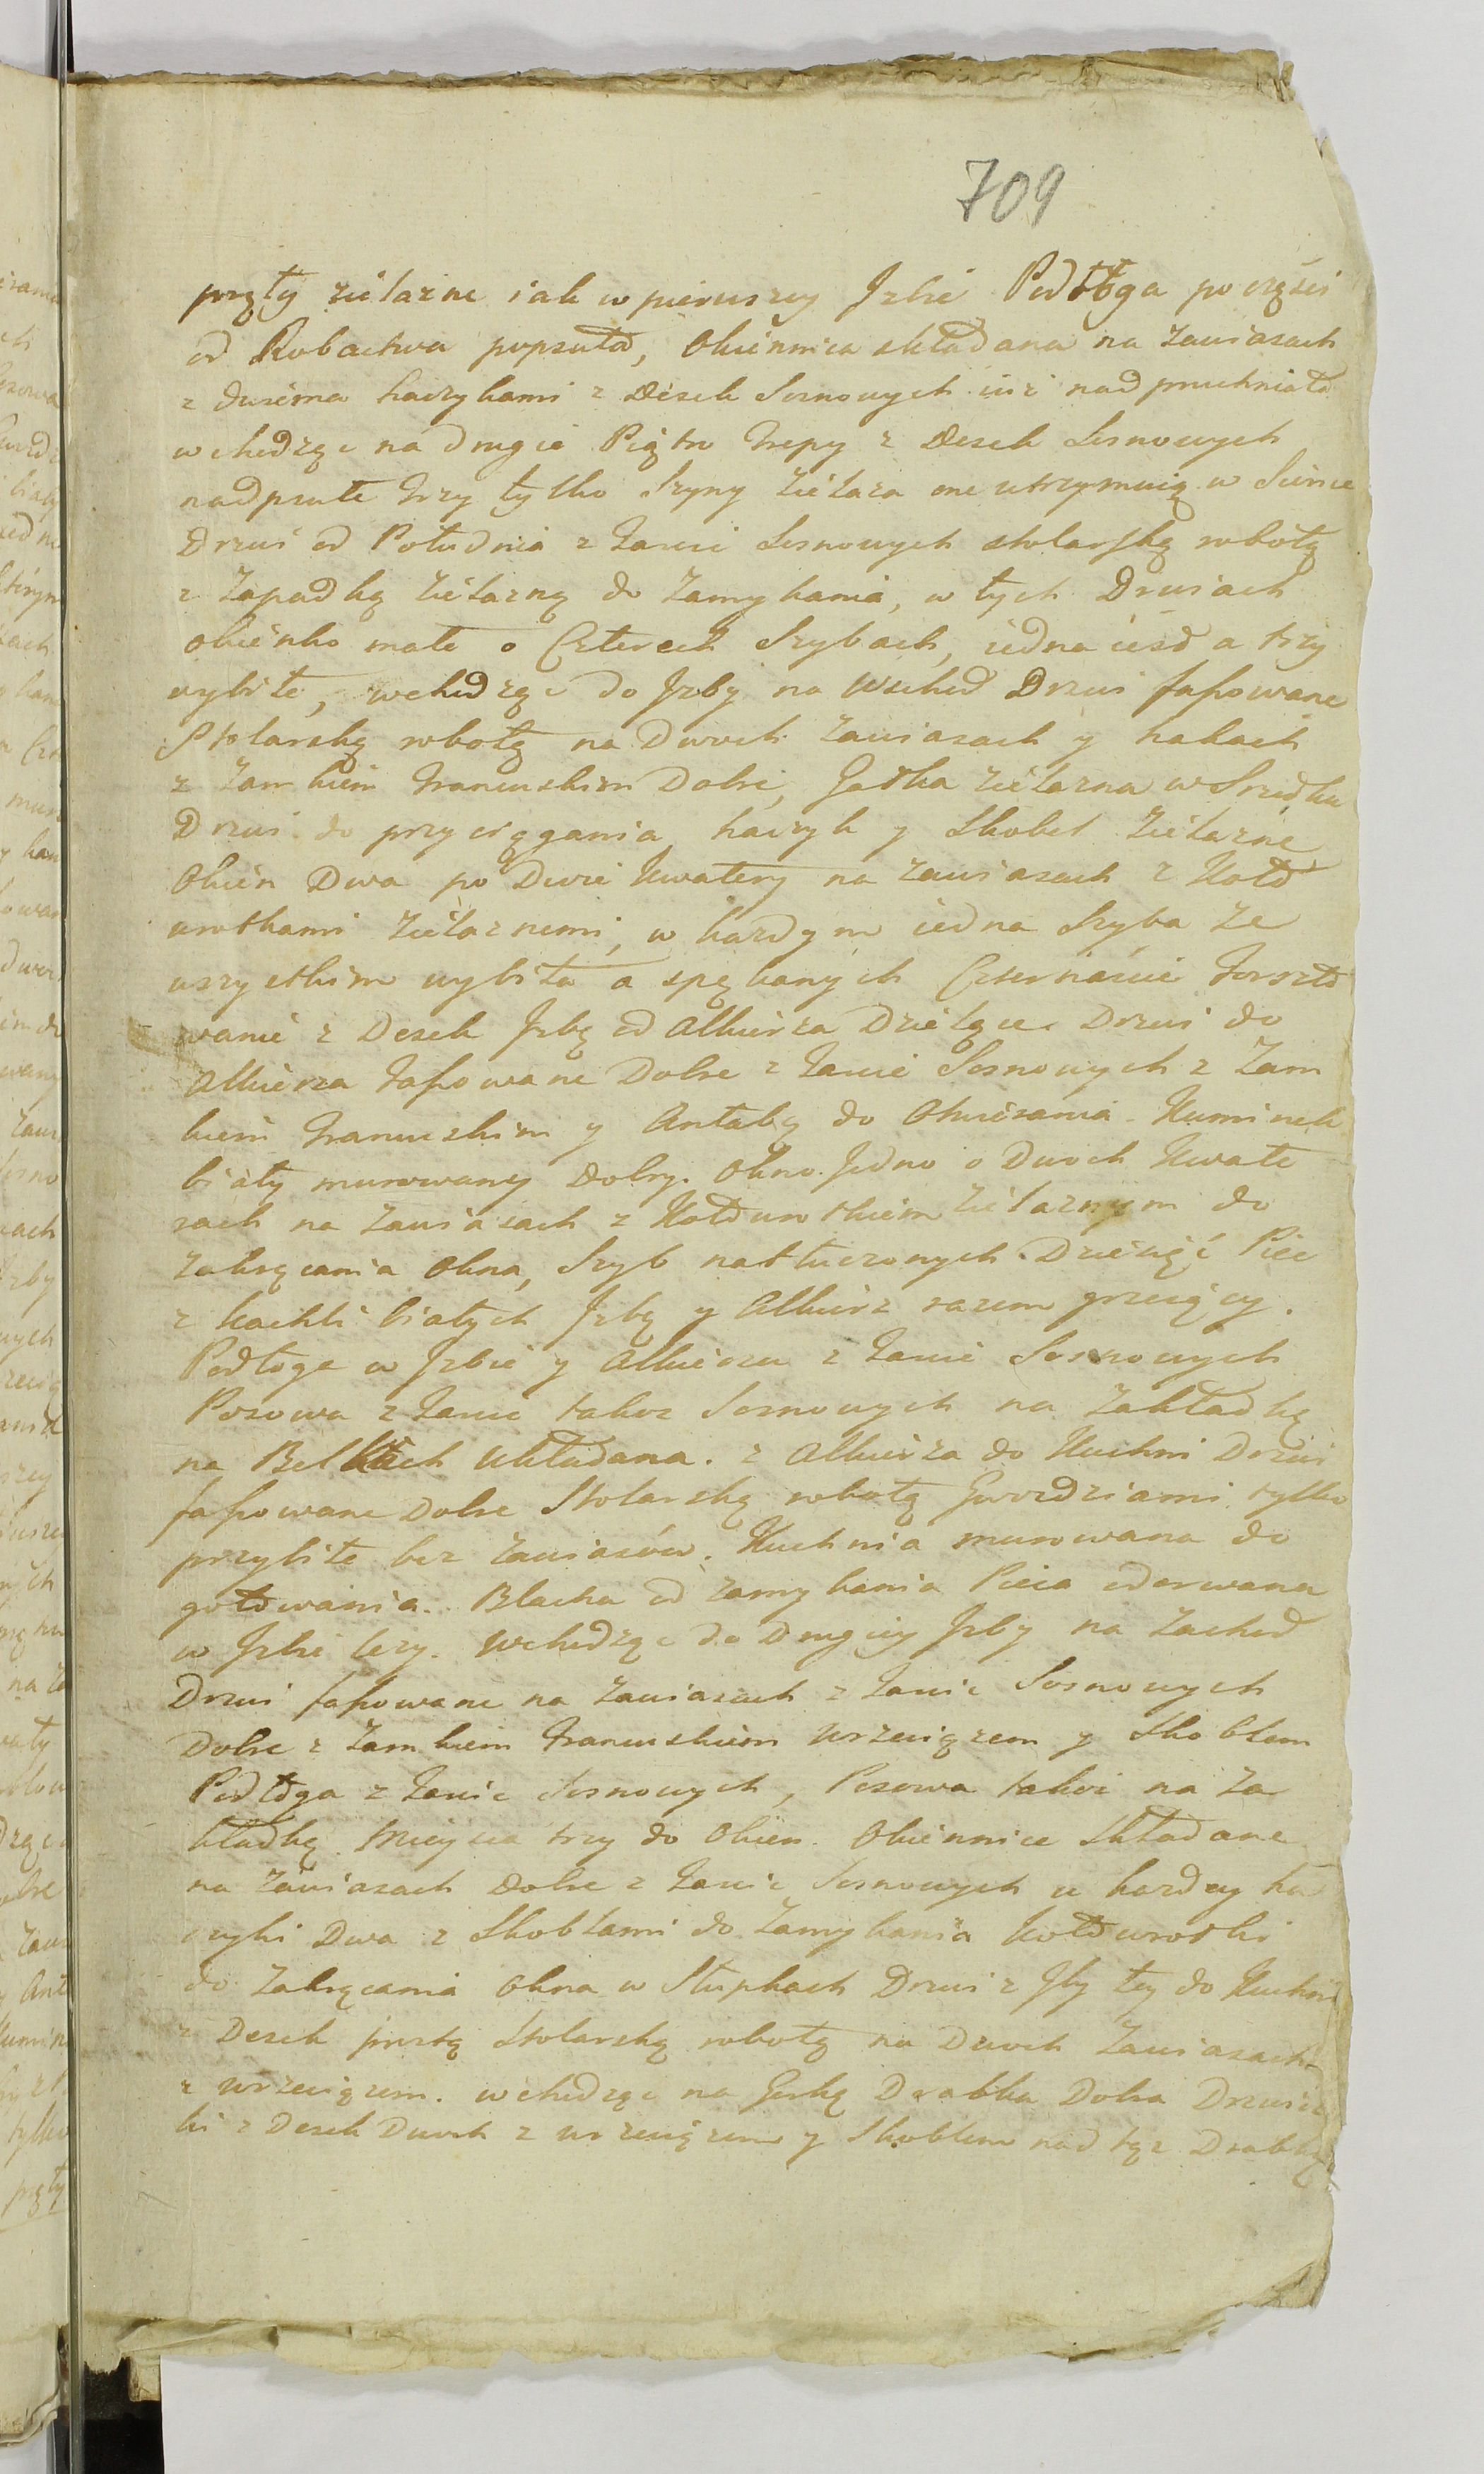 709
pręty żielazne iak w pierwszey Jzbie Podłoga po częsci
od Robactwa popsuta, Okiennica składana na zawiasach
z dwiema haczykami z Desek Sosnowych iuż nad pruchniała
wchodząc na drugie Piętro Trepy z Desek Sosnowych
nadpsute trzy tylko Szyny żielaza one utrzymuią w Sieńce
Drzwi od Południa z Tarcic Sosnowych stolarską robotą
z Zapadką żielazną do Zamykania, w tych Drwiach
okienko małe o Czterech Szybach, iedna iest a trzy
wybite, wchodząc do Jzby na Wschod Drzwi fasowane
Stolarską robotą na Dwoch zawiasach y hakach
z Zamkiem Francuskim Dobre, Gałka żielazna w Srzodku
Drzwi do przyciągania haczyk y Skobel żielazne
Okien Dwa po Dwie Kwatery na zawiasach z Koło
wrotkami żielaznemi, w każdym iedna Szyba ze
wszystkim wybita a spękanych Czternaście Forszto
wanie z Desek Jzbę od Alkierza Dzielące. Drzwi do
Alkierza Fasowane Dobre z Tarcic Sosnowych z Zam
kiem Francuskim y Antabą do Otwierania. Kuminek
biały murowany Dobry. Okno Jedno o Dwoch Kwate
rach na zawiasach z Kołowrotkiem żielaznym do
Zakręcania Okna, Szyb natłuczonych Dziesięć Piec
z kachli białych Jzbę y Alkierz razem grzeiący.
Podłoga w Jzbie y Alkierzu z Tarcic Sosnowych
Pozowa z Tarcic takoż Sosnowych na Zakładkę
na Belkach układana. z Alkierza do Kuchni Drzwi
fasowane Dobre Stolarską robotą Gwozdziami tylko
przybite bez zawiasów. Kuchnia murowana do
gotowania. Blacha od zamykania Pieca oderwana
w Jzbie leży. Wchodząc do Drugiey Jzby na Zachod
Drzwi fasowane na zawiasach z Tarcic Sosnowych
Dobre z Zamkiem Francuskiem wrzeciązem y Skoblem
Podłoga z Tarcic Sosnowych, Pozowa takoż na Za
kładkę. Mieysca trzy do Okien. Okiennice Składane
na zawiasach Dobre z Tarcic Sosnowych u każdey ha
czyki Dwa z Skoblami do Zamykania kołowrotki
do Zakręcania Okna w Słupkach Drzwi z Jzby tey do Kuchni
z Desek prostą Stolarską robotą na Dwoch Zawiasach
z wrzeciązem. wchodząc na Gorkę Drabka Dobra Drzwicz
ki z Desek Dwoch z wrzeciązem y Skoblem nad tąż Drabką